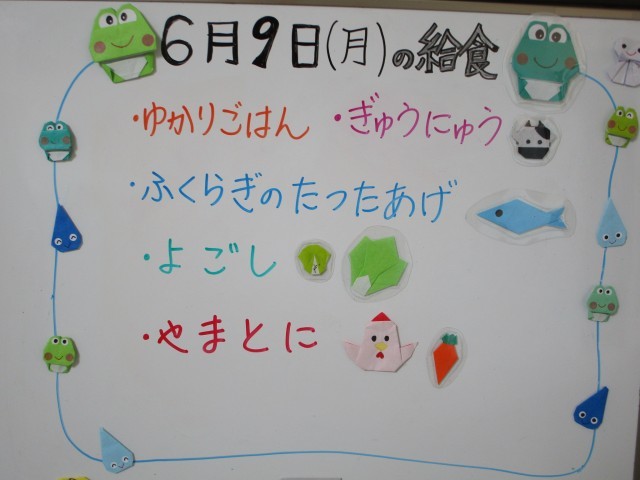 6月9日(月)の給食
・ゆかりごはん ・ぎゅうにゅう
・ふくらぎのたつたあげ
・よごし
・やまとに